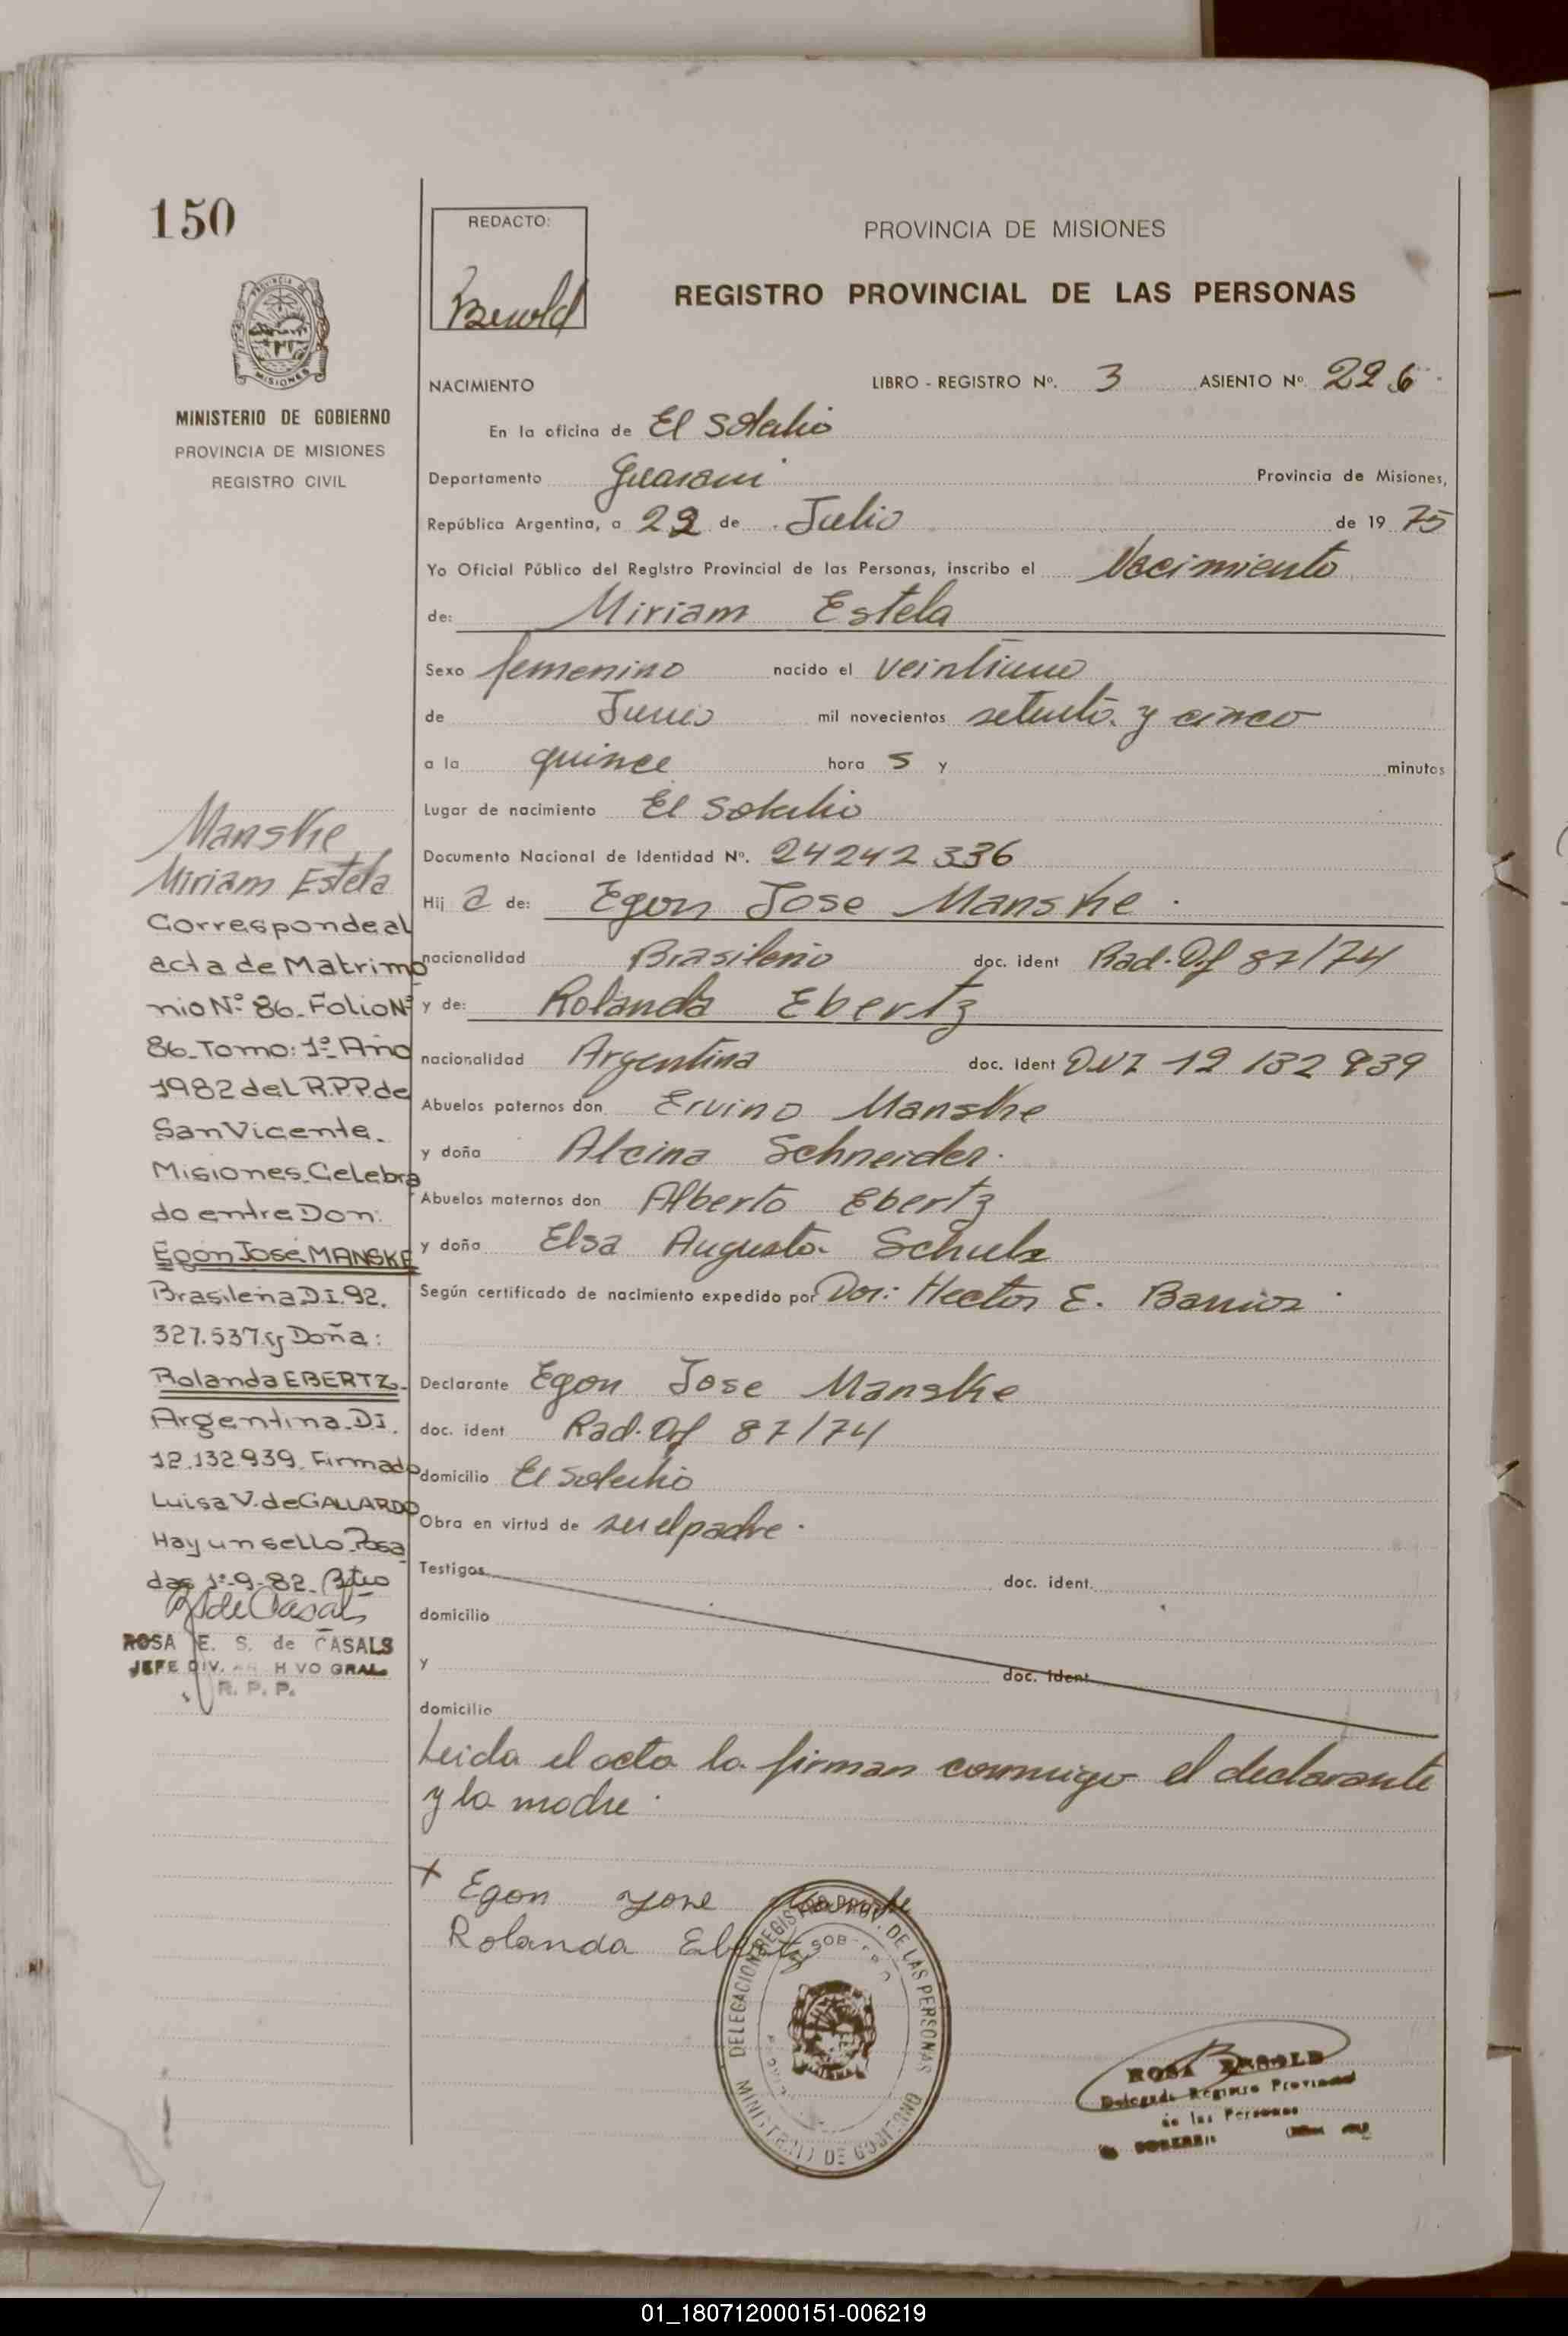 150
REDACTO:
Berold
PROVINCIA DE MISIONES
REGISTRO PROVINCIAL DE LAS PERSONAS
MISIONES
MINISTERIO DE GOBIERNO
PROVINCIA DE MISIONES
REGISTRO CIVIL
NACIMIENTO LIBRO - REGISTRO Nº. 3 ASIENTO Nº. 226
En la oficina de El Soberbio
Departamento Guarani Provincia de Misiones,
República Argentina, a 22 de Julio de 19 75
Yo Oficial Público del Registro Provincial de las Personas, inscribo el Nacimiento
de: Miriam Estela
Sexo femenino nacido el veintiuno
de Junio mil novecientos setenta y cinco
a la quince hora s y minutos
Lugar de nacimiento El Soberbio
Documento Nacional de Identidad Nº. 24242336
Hij a de: Egon Jose Manske
nacionalidad Brasileño doc. ident Rad. Def 87/74
y de: Rolanda Ebertz
nacionalidad Argentina doc. ident D.N.I 12 132 939
Abuelos paternos don Ervino Manske
y doña Alcina Schneider.
Abuelos maternos don Alberto Ebertz
y doña Elsa Augusta Schulz
Según certificado de nacimiento expedido por Dor: Hector E. Barrios
Declarante Egon Jose Manske
doc. ident Rad. Def 87/74
domicilio El Soberbio
Obra en virtud de ser el padre.
Testigos doc. ident.
domicilio
y doc. ident
domicilio
Leida el acta la firman conmigo el declarante
y la madre.
Manske
Miriam Estela
Corresponde al
acta de Matrimo
nio Nº 86. Folio Nº
86. Tomo: 1º Año
1982 del R.P.P. de
San Vicente.
Misiones Celebra
do entre Don:
Egon José MANSKE
Brasileña D.I. 92.
327.537. y Doña:
Rolanda EBERTZ.
Argentina. D.I.
12.132.939. Firmado
Luisa V. de GALLARDO
Hay un sello. Posa
das 1º-9-82.
R S de Casals
ROSA E. S. de CASALS
JEFE DIV. ARCHIVO GRAL.
R. P. P.
X Egon Jose Manske
Rolanda Ebertz
DELEGACION REGISTRO PROV. DE LAS PERSONAS
MINISTERIO DE GOBIERNO
ROSA BEROLD
Delegada Registro Provincial
de las Personas
EL SOBERBIO
01_180712000151-006219